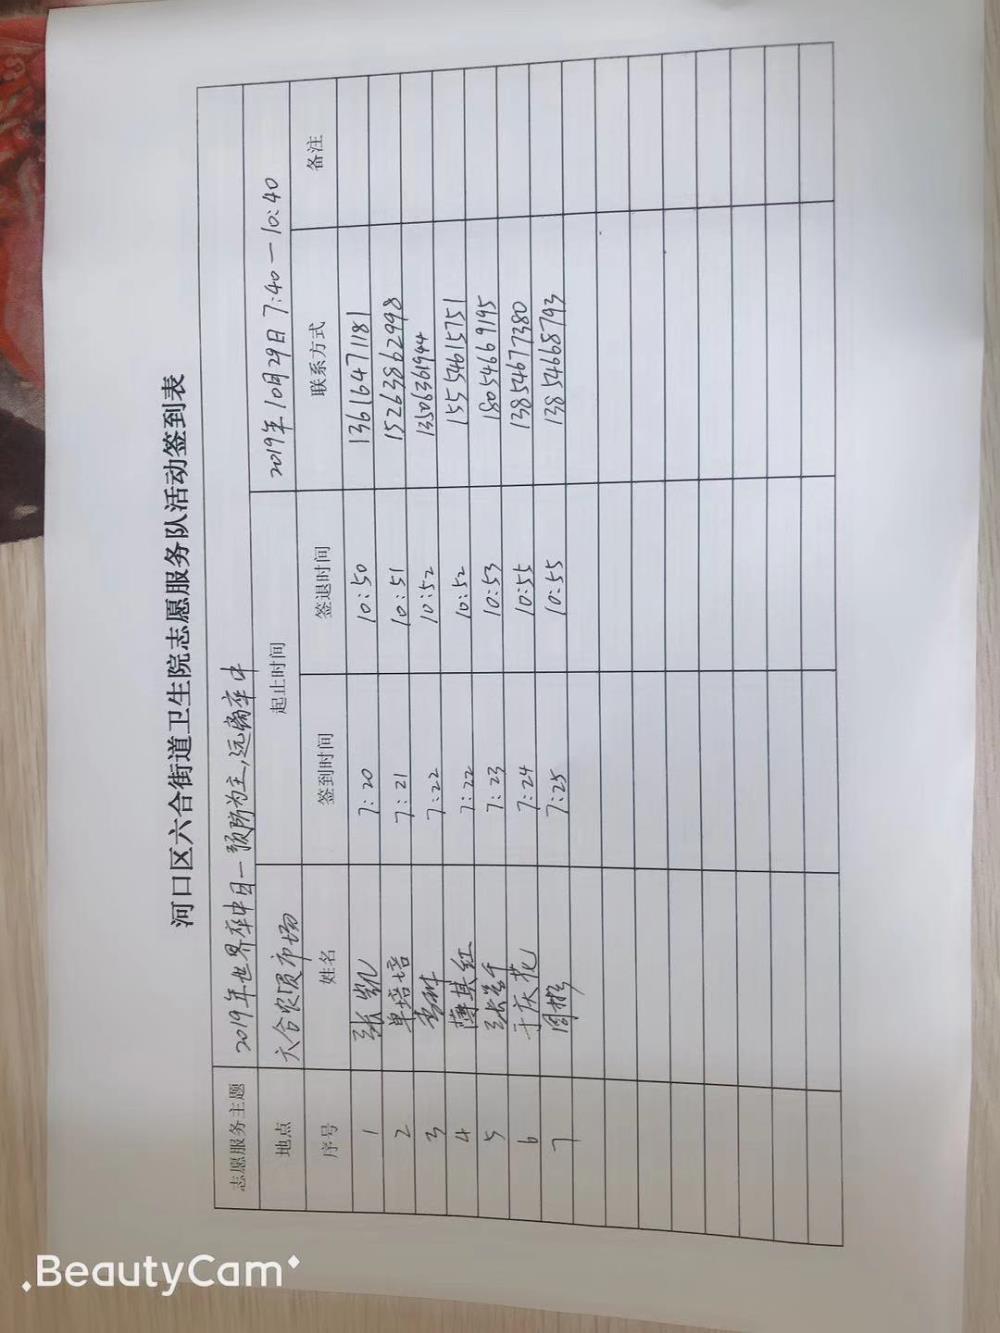 河口区六合街道卫生院志愿服务队活动签到表
志愿服务主题 2019年世界卒中日一预防为主,远离卒中
地点 六合农贸市场 起止时间 2019年10月29日 7:40—10:40
序号 姓名 签到时间 签退时间 联系方式 备注
1 张凯 7:20 10:50 13616471181
2 单培培 7:21 10:51 15263862998
3 7:22 10:52 13506361944
4 薄其红 7:22 10:52 15554615751
5 7:23 10:53 18054669195
6 于庆花 7:24 10:55 13854677380
7 周彬 7:25 10:55 13854668793
BeautyCam